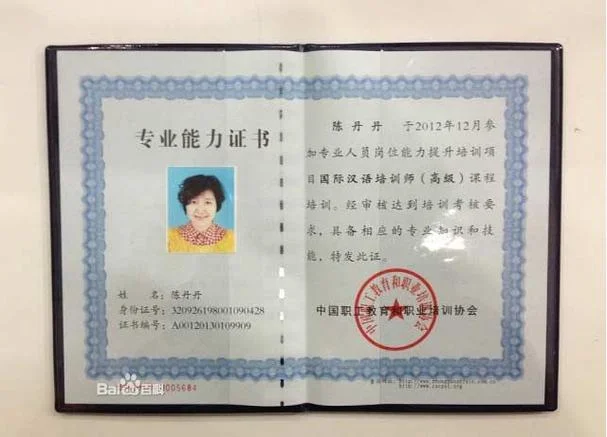 专业能力证书
姓 名：陈丹丹
身份证号：320926198001090428
证书编号：A00120130109909
Baidu百科
005684
陈丹丹 于2012年12月参
加专业人员岗位能力提升培训项
目国际汉语培训师（高级）课程
培训。经审核达到培训考核要
求，具备相应的专业知识和技
能，特发此证。
中国职工教育和职业培训协会
中国职工教育和职业培训协会